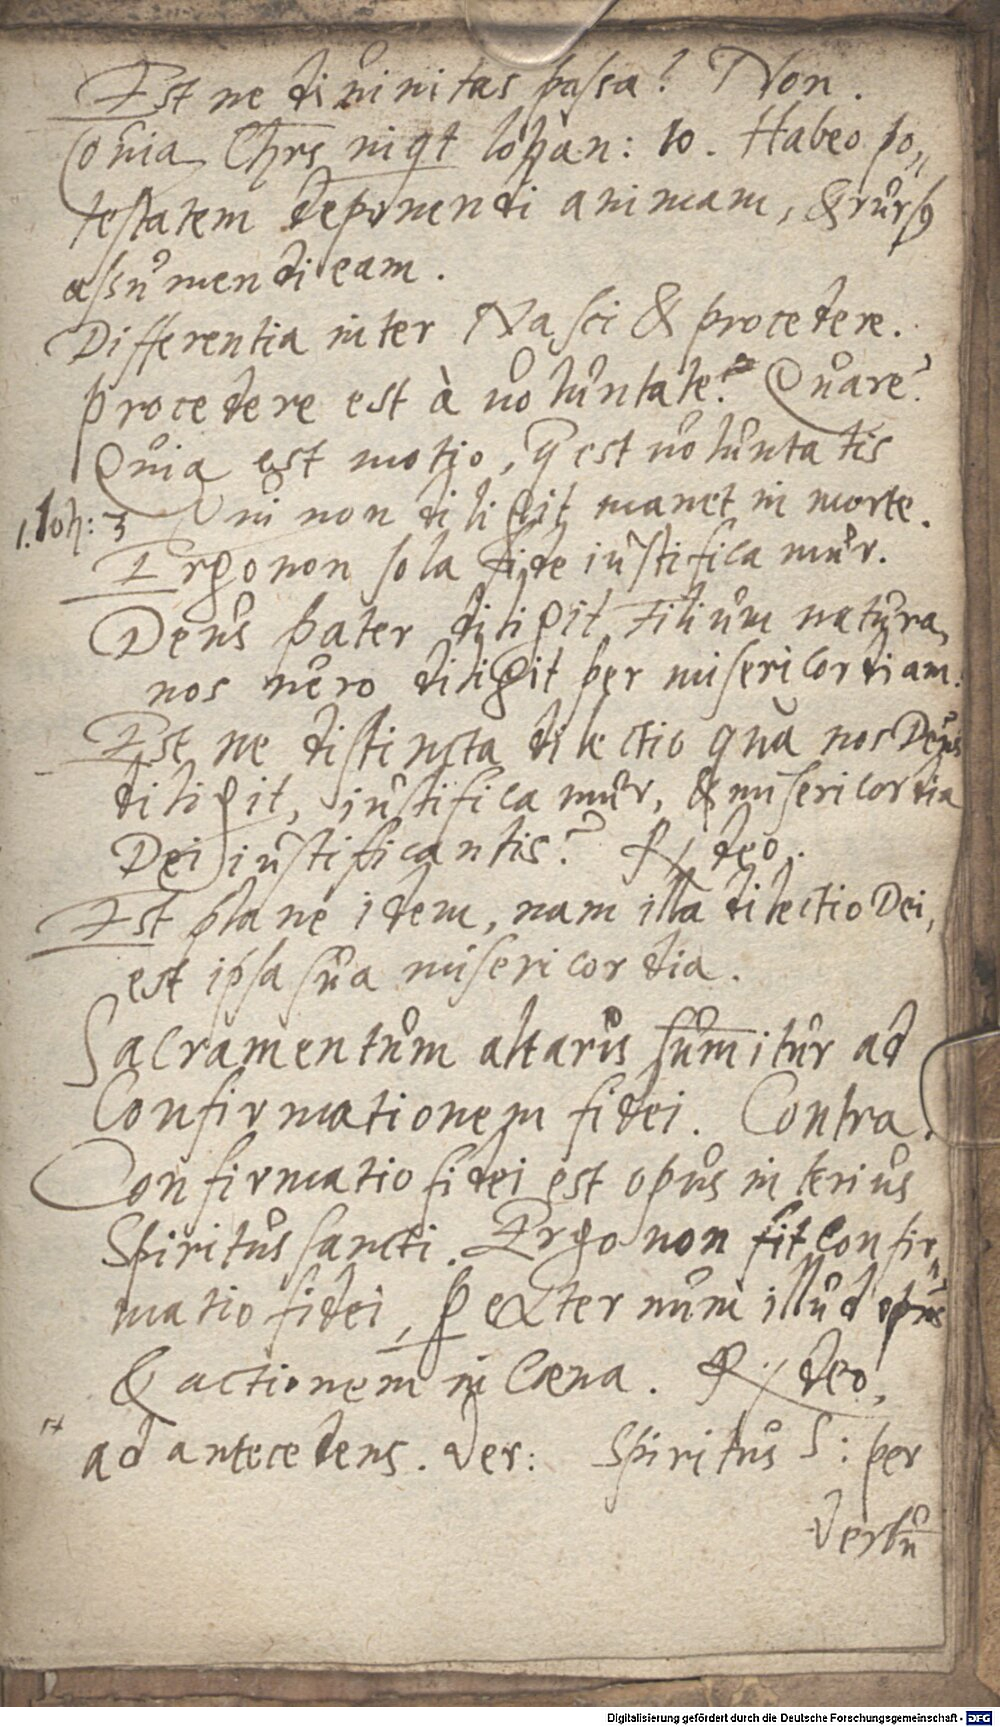 Est ne diuinitas passa? Non.
Quia Chrs niqt Iohan: 10. Habeo po„
testatem deponendi animam, & rursꝰ
assumendi eam.
Differentia inter Nasci & procedere.
procedere est à uoluntate? Quare?
Quia est motio, q̃ est uoluntatis
1. Ioh: 3 Qui non diligit manet in morte.
Ergo non sola fide iustificamur.
Deus pater diligit Filium natura,
nos uero diligit per misericordiam.
Est ne distincta dilectio qua nos Deus
diligit, iustificamur, & misericordia
Dei iustificantis? R/ deo.
Est plane idem, nam illa dilectio Dei,
est ipsa sua misericordia.
Sacramentum altaris sum̄itur ad
Confirmationem fidei. Contra.
Confirmatio fidei est opus interius
Spiritus sancti. Ergo non fit Confir„
matio fidei, ꝑ externum illud opus
& actionem in Cæna. R/ deo,
ad antecedens. Ver: Spiritus S: per
Verbū
Digitalisierung gefördert durch die Deutsche Forschungsgemeinschaft - DFG